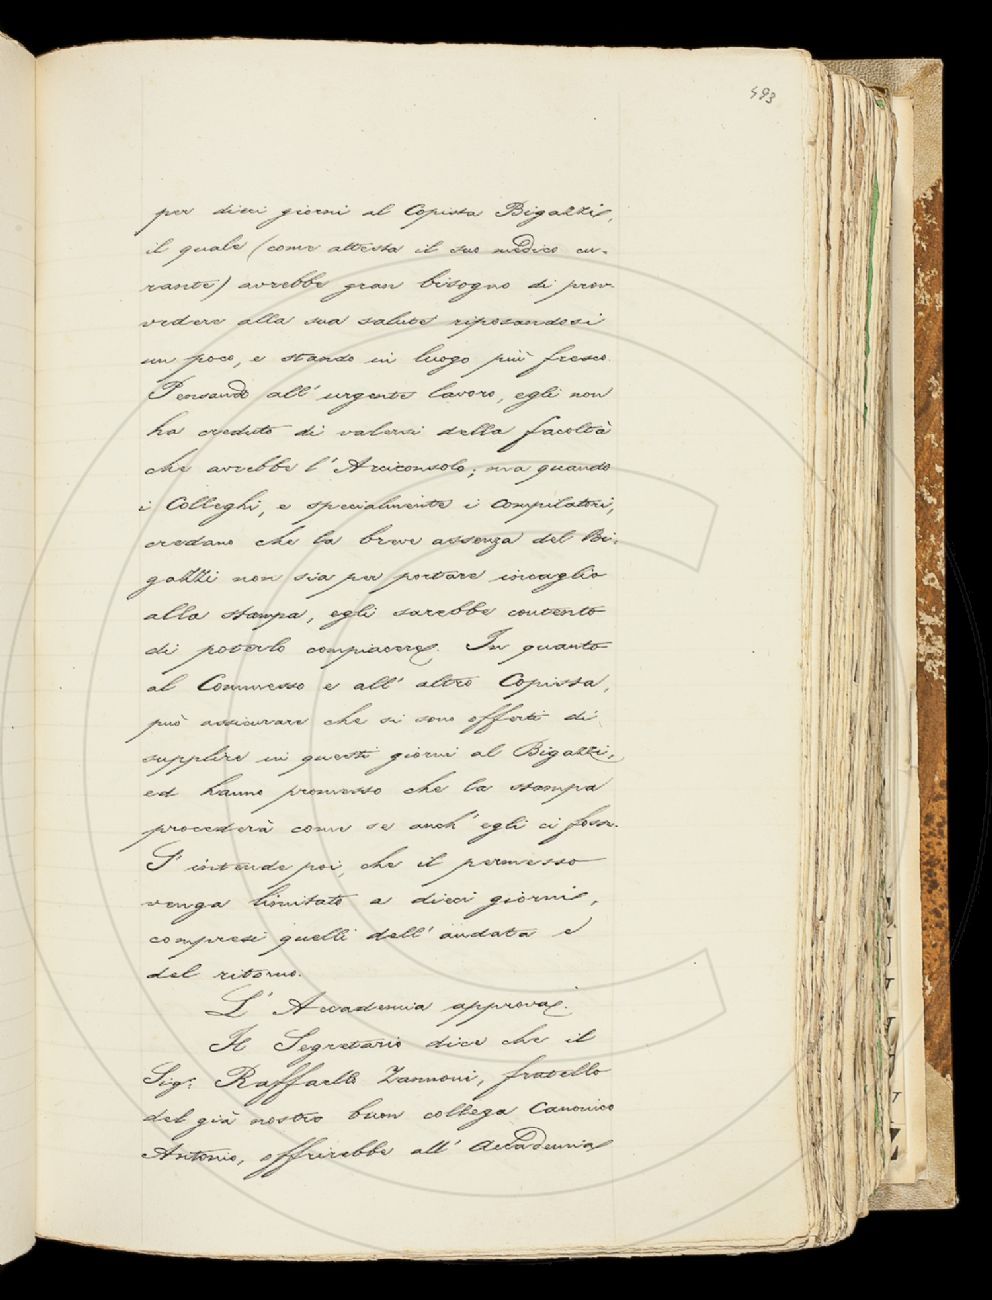 493
per dieci giorni al Copista Bigazzi,
il quale (come attesta il suo medico cu-
rante) avrebbe gran bisogno di prov-
vedere alla sua salute riposandosi
un poco, e stando in luogo più fresco.
Pensando all' urgente lavoro, egli non
ha creduto di valersi della facoltà
che avrebbe l' Arciconsolo; ma quando
i Colleghi, e specialmente i Compilatori,
credano che la breve assenza del Bi-
gazzi non sia per portare incaglio
alla stampa, egli sarebbe contento
di poterlo compiacere. In quanto
al Commesso e all' altro Copista,
può assicurare che si sono offerti di
supplire in questi giorni al Bigazzi,
ed hanno promesso che la stampa
procederà come se anch' egli ci fosse.
S' intende poi, che il permesso
venga limitato a dieci giorni,
compresi quelli dell' andata e
del ritorno.
L' Accademia approva.
Il Segretario dice che il
Sig.r Raffaello Zannoni, fratello
del già nostro buon collega Canonico
Antonio, offrirebbe all' Accademia